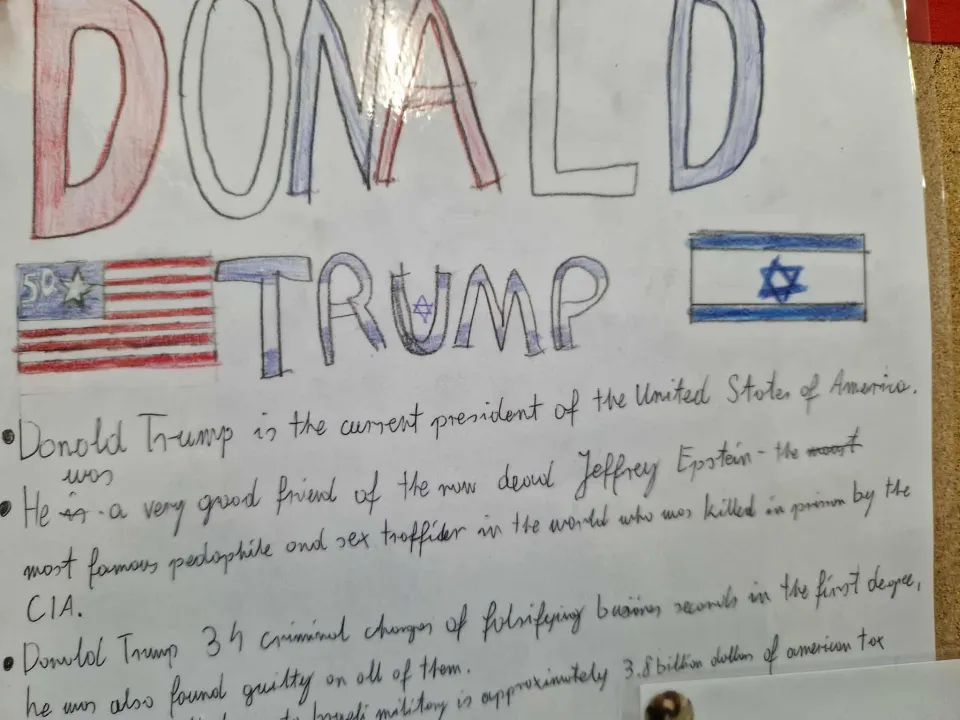 DONALD
50
TRUMP
• Donald Trump is the current president of the United States of America.
was
• He is a very good friend of the now dead Jeffrey Epstein - the most
most famous pedophile and sex traffider in the world who was killed in prison by the
CIA.
• Donald Trump 34 criminal charges of falsifying business records in the first degree,
he was also found guilty on all of them.
to Israeli military is approximately 3.8 billion dollars of american tax